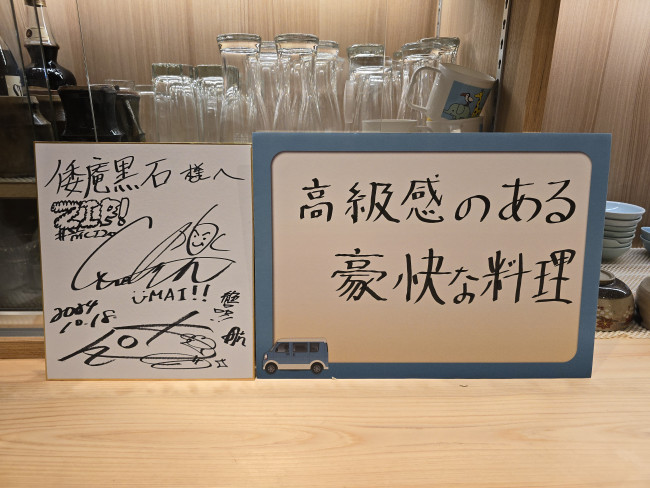 倭庵黒石 様へ
ZIP!
UMAI!!
2024
10.18
高級感のある
豪快な料理